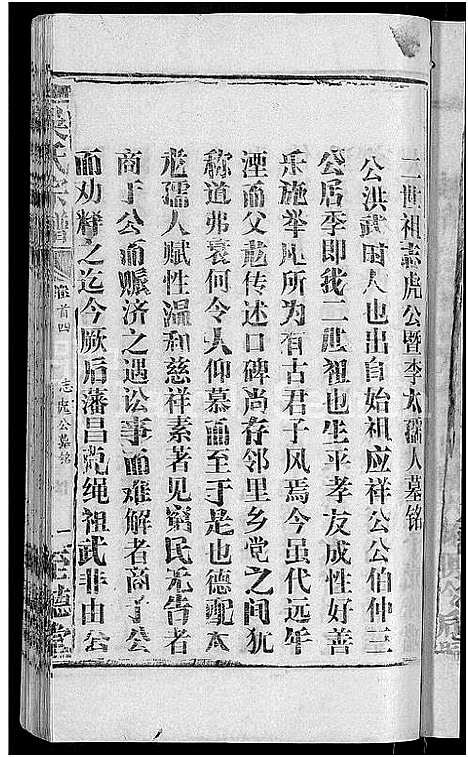 二世祖志虎公暨李太孺人墓铭
公洪武时人也出自始祖应祥公公伯仲三
公居季即我二世祖也生平孝友成性好善
乐施举凡所为有古君子风焉今虽代远年
湮而父老传述口碑尚存邻里乡党之间犹
称道弗衰何令人仰慕而至于是也德配太
老孺人赋性温和慈祥素著见穷民无告者
商于公而赈济之遇讼事而难解者商于公
而劝释之迄今厥后藩昌克绳祖武非由公
吴氏宗谱
首四
志虎公墓铭
一
至德堂